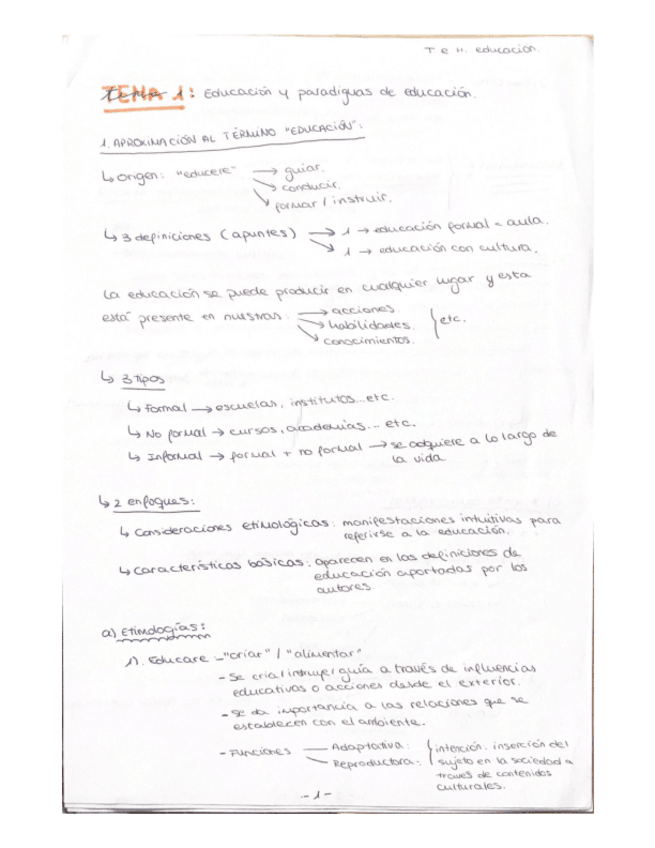 T e H. educación.
TEMA 1: Educación y paradigmas de educación.
1. APROXIMACIÓN AL TÉRMINO "EDUCACIÓN":
↳ origen: "educere" → guiar.
↘ conducir.
↘ formar / instruir.
↳ 3 definiciones (apuntes) → 1 → educación formal = aula.
↘ 1 → educación con cultura.
La educación se puede producir en cualquier lugar y esta
está presente en nuestras: → acciones.
→ habilidades. } etc.
↘ conocimientos.
↳ 3 tipos
↳ Formal → escuelas, institutos... etc.
↳ No formal → cursos, academias... etc.
↳ Informal → formal + no formal → se adquiere a lo largo de
la vida
↳ 2 enfoques:
↳ Consideraciones etimológicas: manifestaciones intuitivas para
referirse a la educación.
↳ Características básicas: aparecen en las definiciones de
educación aportadas por los
autores.
a) ETIMOLOGÍAS:
1). Educare: -"criar" / "alimentar"
- Se cria/instruye/guía a través de influencias
educativas o acciones desde el exterior.
- Se da importancia a las relaciones que se
establecen con el ambiente.
- Funciones — Adaptativa: { intención: inserción del
Reproductora: sujeto en la sociedad a
través de contenidos
culturales.
- 1 -